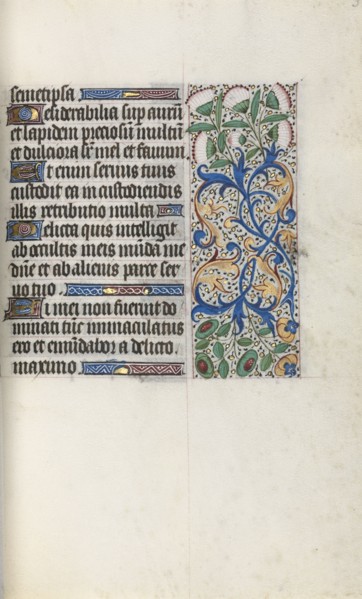 semetipsa
Desiderabilia sup aurũ
et lapidem preciosũ multũ
et dulciora sr mel et fauum
Etenim seruus tuus
custodit ea in custodiendis
illis retributio multa
Delicta quis intelligit
ab occultis meis mũda me
dñe et ab alienis parce ser
uo tuo.
Si mei non fuerint do
minati tũc inmaculatus
ero et emũdabor a delicto
maximo.